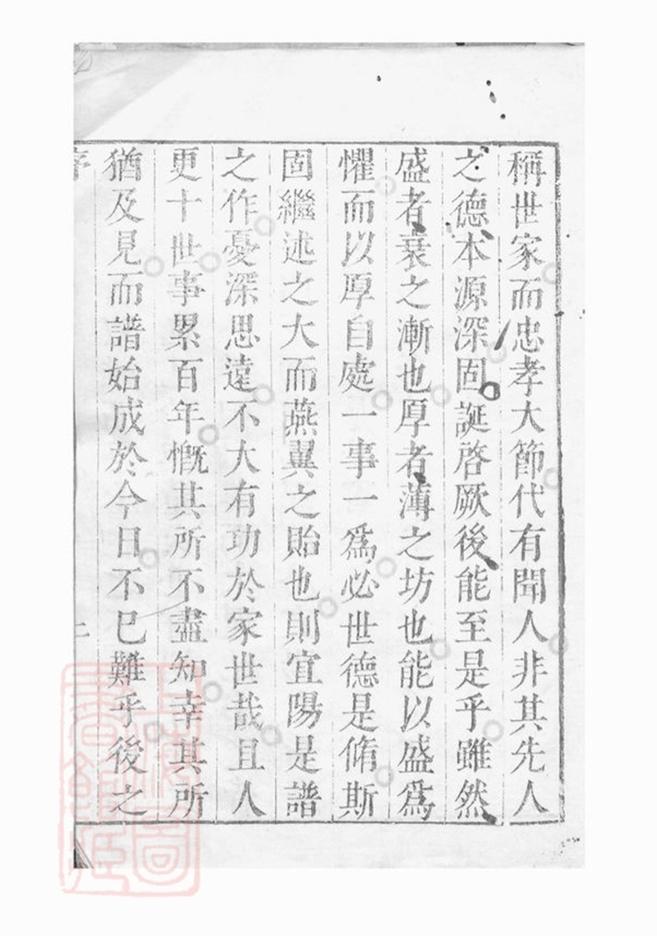 稱世家而忠孝大節代有聞人非其先人
之德本源深固誕啓厥後能至是乎雖然
盛者衰之漸也厚者薄之坊也能以盛爲
懼而以厚自處一事一爲必世德是脩斯
固繼述之大而燕翼之貽也則宜陽是譜
之作憂深思遠不大有功於家世哉且人
更十世事累百年慨其所不盡知幸其所
猶及見而譜始成於今日不已難乎後之
序
上